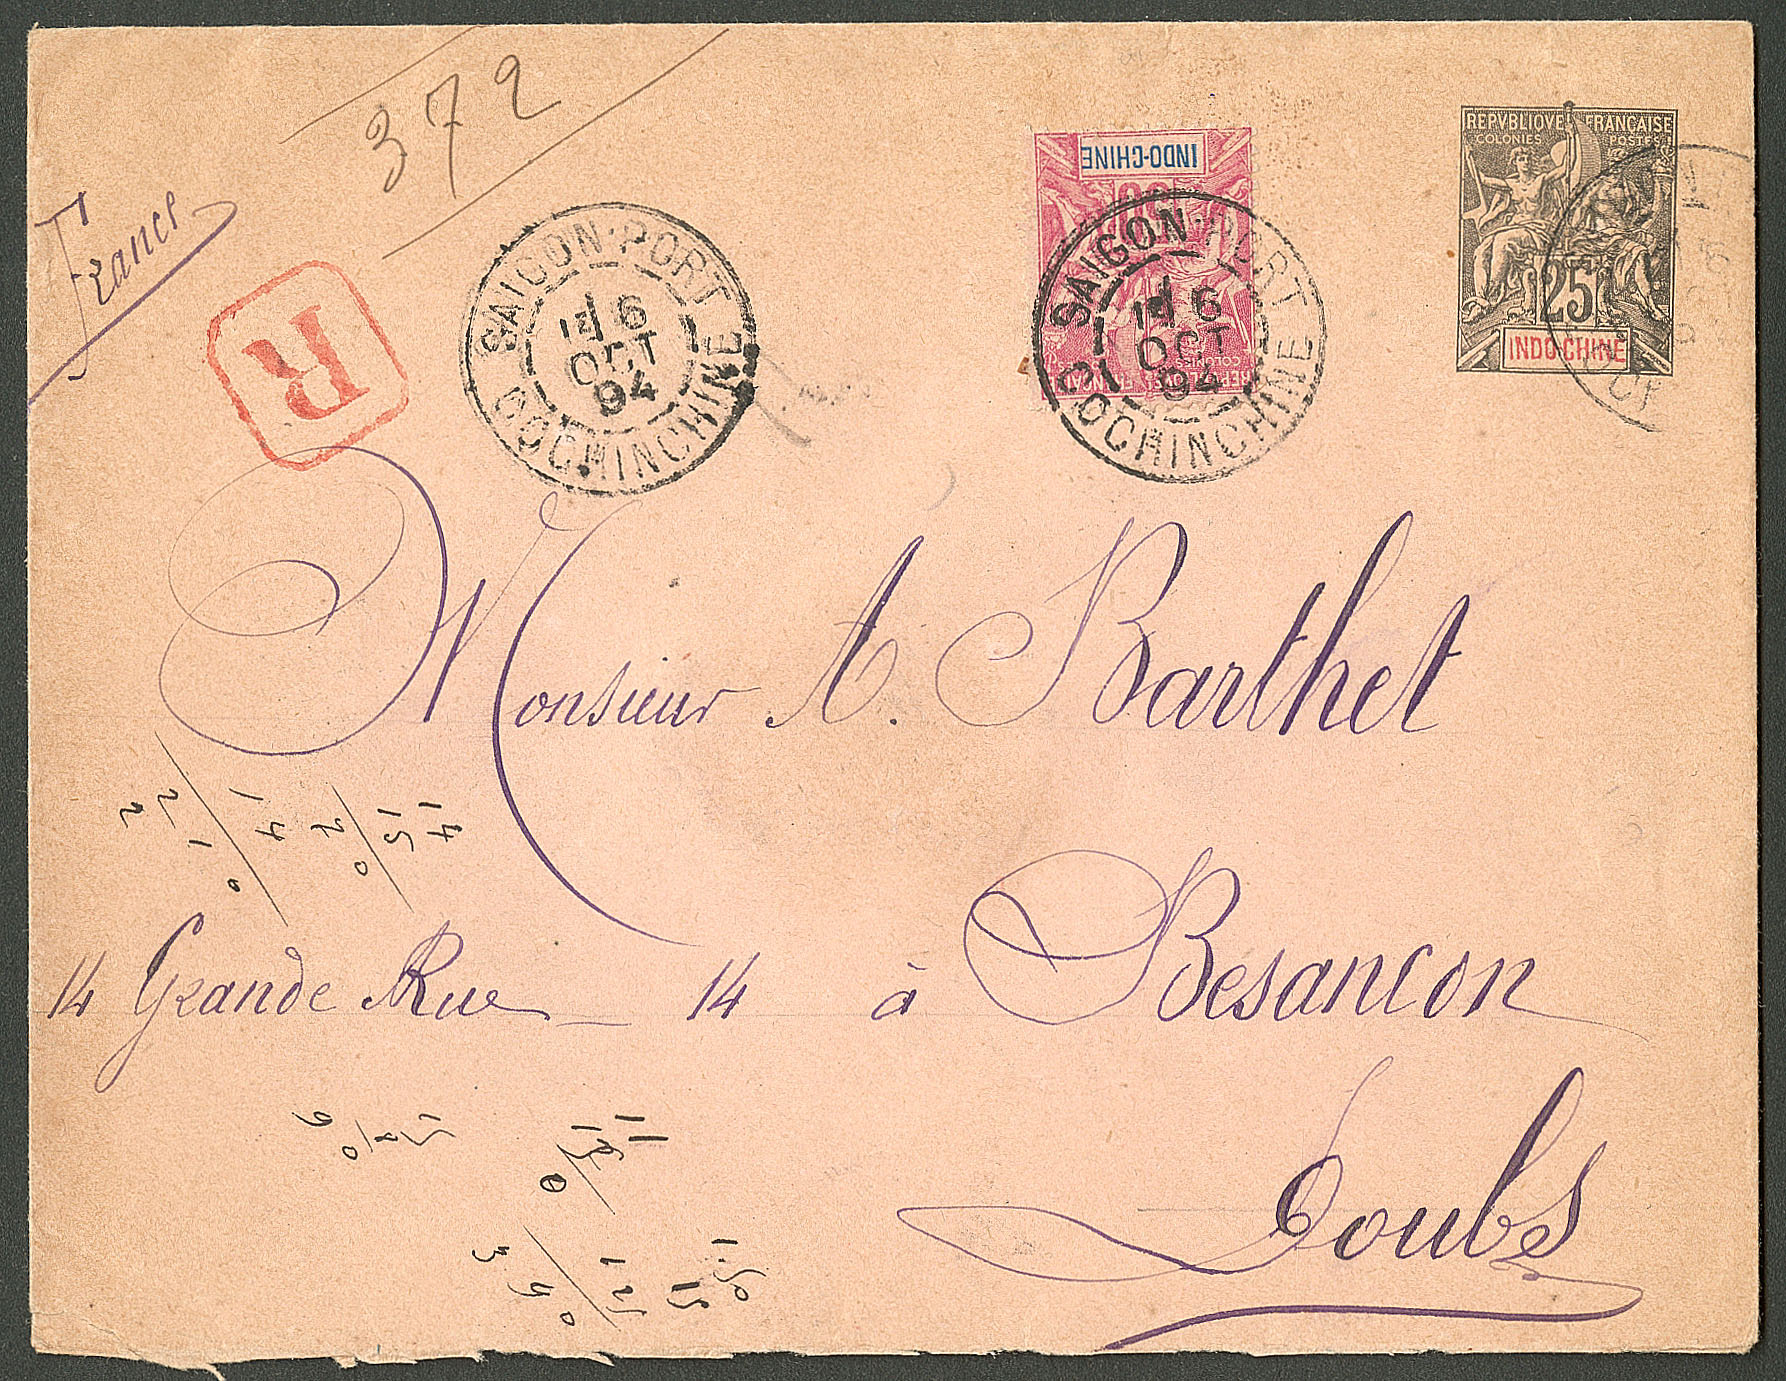 372
France
R
SAIGON·PORT
16
OCT
94
COCHINCHINE
INDO-CHINE
50
COLONIES
SAIGON·PORT
16
OCT
94
COCHINCHINE
REPVBLIQVE FRANÇAISE
COLONIES POSTES
25
INDO-CHINE
Monsieur A. Barthet
14
15
70
14
210
2
14 Grande Rue _ 14 à Besancon
Doubs
11
15
1.50
15